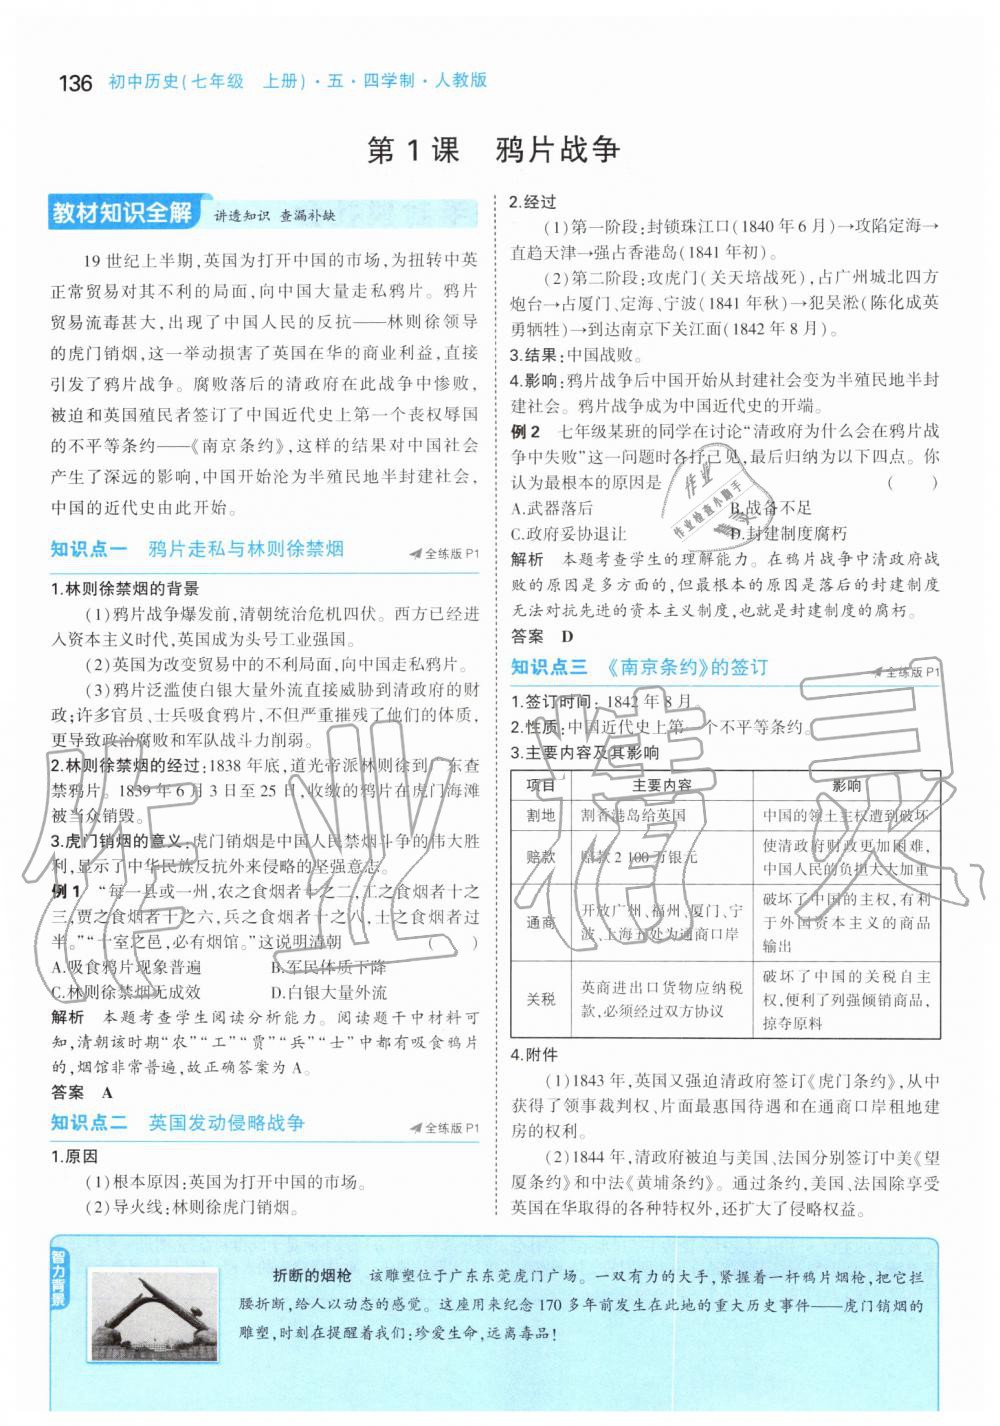 136 初中历史(七年级 上册)·五·四学制·人教版
第1课 鸦片战争
教材知识全解 讲透知识 查漏补缺
19世纪上半期,英国为打开中国的市场,为扭转中英
正常贸易对其不利的局面,向中国大量走私鸦片。鸦片
贸易流毒甚大,出现了中国人民的反抗——林则徐领导
的虎门销烟,这一举动损害了英国在华的商业利益,直接
引发了鸦片战争。腐败落后的清政府在此战争中惨败,
被迫和英国殖民者签订了中国近代史上第一个丧权辱国
的不平等条约——《南京条约》,这样的结果对中国社会
产生了深远的影响,中国开始沦为半殖民地半封建社会,
中国的近代史由此开始。
知识点一 鸦片走私与林则徐禁烟 全练版P1
1.林则徐禁烟的背景
(1)鸦片战争爆发前,清朝统治危机四伏。西方已经进
入资本主义时代,英国成为头号工业强国。
(2)英国为改变贸易中的不利局面,向中国走私鸦片。
(3)鸦片泛滥使白银大量外流直接威胁到清政府的财
政;许多官员、士兵吸食鸦片,不但严重摧残了他们的体质,
更导致政治腐败和军队战斗力削弱。
2.林则徐禁烟的经过:1838年底,道光帝派林则徐到广东查
禁鸦片。1839年6月3日至25日,收缴的鸦片在虎门海滩
被当众销毁。
3.虎门销烟的意义:虎门销烟是中国人民禁烟斗争的伟大胜
利,显示了中华民族反抗外来侵略的坚强意志。
例1 “每一县或一州,农之食烟者十之二,工之食烟者十之
三,贾之食烟者十之六,兵之食烟者十之八,士之食烟者过
半。”“十室之邑,必有烟馆。”这说明清朝 ( )
A.吸食鸦片现象普遍 B.军民体质下降
C.林则徐禁烟无成效 D.白银大量外流
解析 本题考查学生阅读分析能力。阅读题干中材料可
知,清朝该时期“农”“工”“贾”“兵”“士”中都有吸食鸦片
的,烟馆非常普遍,故正确答案为A。
答案 A
知识点二 英国发动侵略战争 全练版P1
1.原因
(1)根本原因:英国为打开中国的市场。
(2)导火线:林则徐虎门销烟。
2.经过
(1)第一阶段:封锁珠江口(1840年6月)→攻陷定海→
直趋天津→强占香港岛(1841年初)。
(2)第二阶段:攻虎门(关天培战死),占广州城北四方
炮台→占厦门、定海、宁波(1841年秋)→犯吴淞(陈化成英
勇牺牲)→到达南京下关江面(1842年8月)。
3.结果:中国战败。
4.影响:鸦片战争后中国开始从封建社会变为半殖民地半封
建社会。鸦片战争成为中国近代史的开端。
例2 七年级某班的同学在讨论“清政府为什么会在鸦片战
争中失败”这一问题时各抒己见,最后归纳为以下四点。你
认为最根本的原因是 ( )
A.武器落后 B.战备不足
C.政府妥协退让 D.封建制度腐朽
解析 本题考查学生的理解能力。在鸦片战争中清政府战
败的原因是多方面的,但最根本的原因是落后的封建制度
无法对抗先进的资本主义制度,也就是封建制度的腐朽。
答案 D
知识点三 《南京条约》的签订 全练版P1
1.签订时间:1842年8月。
2.性质:中国近代史上第一个不平等条约。
3.主要内容及其影响
项目 主要内容 影响
割地 割香港岛给英国 中国的领土主权遭到破坏
赔款 赔款2 100万银元 使清政府财政更加困难,
中国人民的负担大大加重
通商 开放广州、福州、厦门、宁
波、上海五处为通商口岸 破坏了中国的主权,有利
于外国资本主义的商品
输出
关税 英商进出口货物应纳税
款,必须经过双方协议 破坏了中国的关税自主
权,便利了列强倾销商品,
掠夺原料
4.附件
(1)1843年,英国又强迫清政府签订《虎门条约》,从中
获得了领事裁判权、片面最惠国待遇和在通商口岸租地建
房的权利。
(2)1844年,清政府被迫与美国、法国分别签订中美《望
厦条约》和中法《黄埔条约》。通过条约,美国、法国除享受
英国在华取得的各种特权外,还扩大了侵略权益。
智力背景
折断的烟枪 该雕塑位于广东东莞虎门广场。一双有力的大手,紧握着一杆鸦片烟枪,把它拦
腰折断,给人以动态的感觉。这座用来纪念170多年前发生在此地的重大历史事件——虎门销烟的
雕塑,时刻在提醒着我们:珍爱生命,远离毒品!
作业
作业检查小助手
精灵
作业精灵